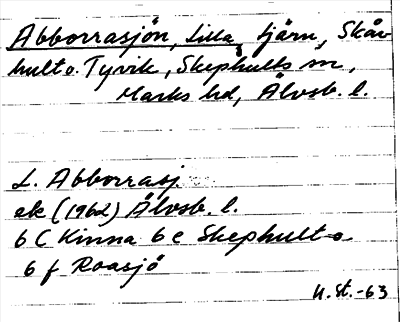 Abborrasjön, Lilla, tjärn, Skår
hult o. Tyvik, Skephults sn,
Marks hd, Älvsb. l.
L. Abborrasj.
ek (1962) Älvsb. l.
6 C Kinna 6 e Skephult o
6 f Roasjö
U. St. -63